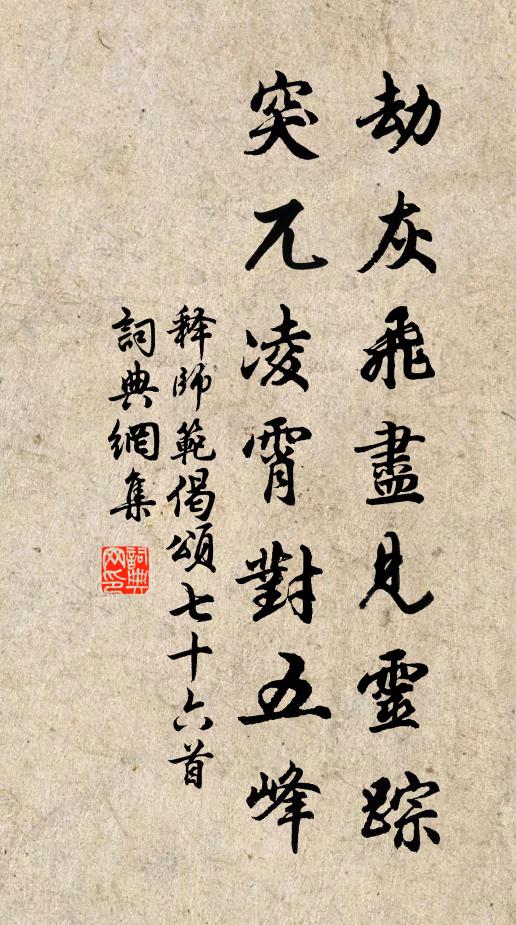 劫灰飛盡見靈踪
突兀凌霄對五峰
释師範偈頌七十六首
詞典網集
詞典網印